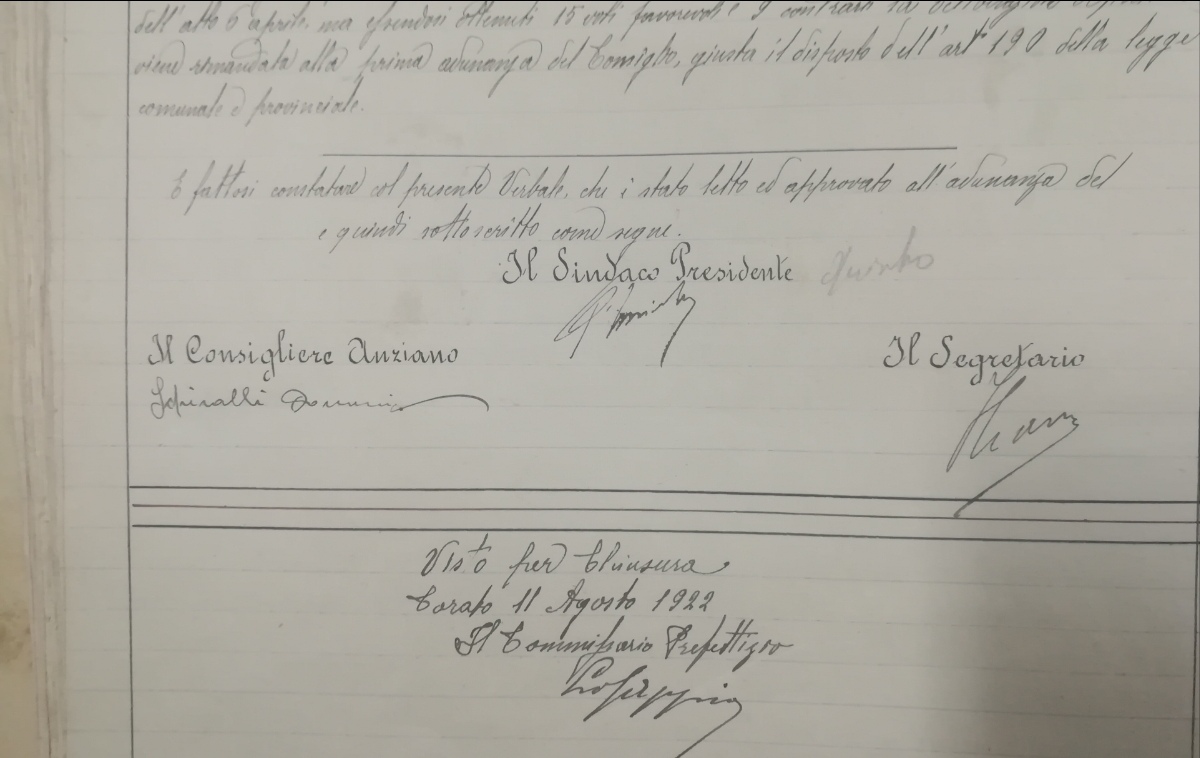 dell'atto 6 aprile, ma essendosi ottenuti 15 voti favorevoli e 9 contrari la
viene rimandata alla prima adunanza del Consiglio, giusta il disposto dell'art° 190 della legge
comunale e provinciale.
E fattosi constatare col presente Verbale, che è stato letto ed approvato all'adunanza del
e quindi sottoscritto come segue.
Il Sindaco Presidente
Il Consigliere Anziano
Il Segretario
Visto per Chiusura
Corato 11 Agosto 1922
Il Commissario Prefettizio